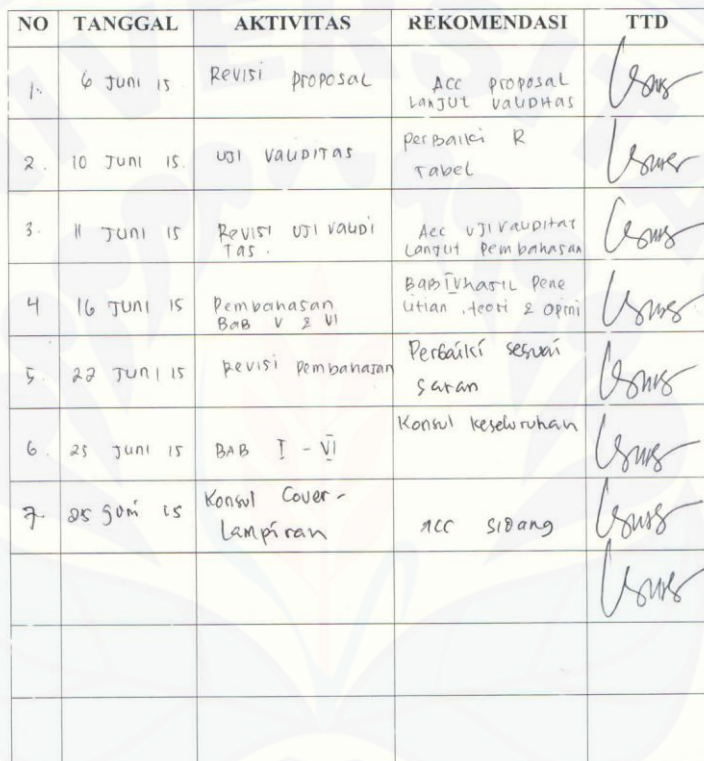 NO TANGGAL AKTIVITAS REKOMENDASI TTD
1. 6 JUNI 15 Revisi proposal Acc proposal
Lanjut validitas
2. 10 JUNI 15. UJI VALIDITAS Perbaiki R
Tabel
3. 11 JUNI 15 Revisi UJI validi
tas. Acc UJI validitas
Lanjut Pembahasan
4 16 JUNI 15 Pembahasan
BAB V & VI BAB IV hasil Pene
litian, teori & opini
5. 22 JUNI 15 Revisi Pembahasan Perbaiki sesuai
saran
6. 25 JUNI 15 BAB I - VI Konsul keseluruhan
7. 25 Juni 15 Konsul Cover -
Lampiran ACC SIDANG